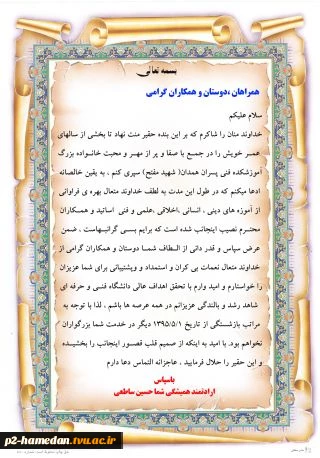 بسمه تعالی
همراهان ،دوستان و همکاران گرامی
سلام علیکم
خداوند منان را شاکرم که بر این بنده حقیر منت نهاد تا بخشی از سالهای
عمر خویش را در جمع با صفا و پر از مهر و محبت خانواده بزرگ
آموزشکده فنی پسران همدان( شهید مفتح) سپری کنم ، به یقین خالصانه
ادعا میکنم که در طول این مدت به لطف خداوند متعال بهره ی فراوانی
از آموزه های دینی ، انسانی ،اخلاقی ،علمی و فنی اساتید و همکاران
محترم نصیب اینجانب شده است که برایم بسی گرانبهاست ، ضمن
عرض سپاس و قدر دانی از الطاف شما دوستان و همکاران گرامی از
خداوند متعال نعمات بی کران و استمداد و پشتیبانی برای شما عزیزان
را خواستارم و امید وارم با تحقق اهداف عالی دانشگاه فنی و حرفه ای
شاهد رشد و بالندگی عزیزانم در همه عرصه ها باشم ، لذا با توجه به
مراتب بازنشستگی از تاریخ ۱۳۹۵/۵/۱ دیگر در خدمت شما بزرگواران
نخواهم بود. با امید به اینکه از صمیم قلب قصور اینجانب را بخشیده
و این حقیر را حلال فرمایید ، عاجزانه التماس دعا دارم
باسپاس
ارادتمند همیشگی شما حسین ساطعی
p2-hamedan.tvu.ac.ir